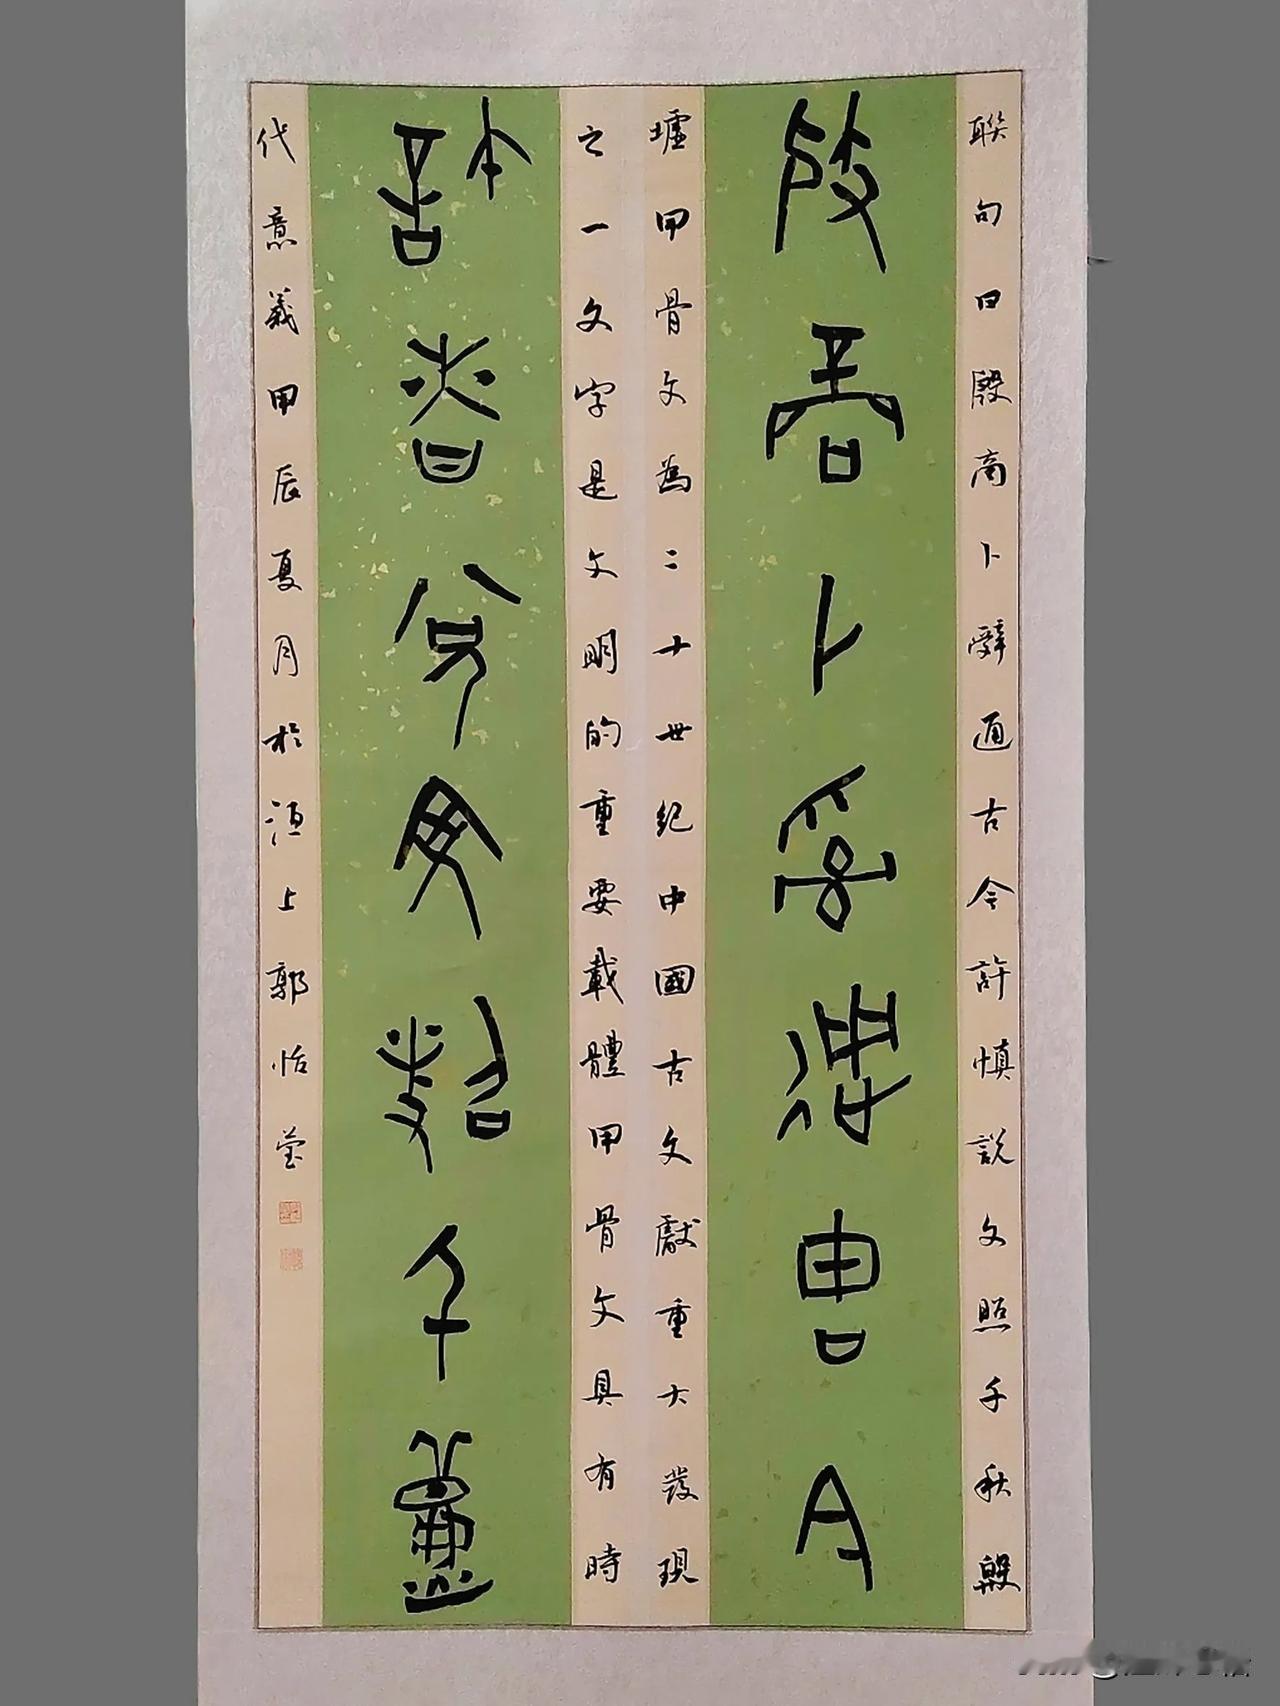 聯句曰殷商卜辭通古今許慎說文照千秋殷
殷商卜辭通古今
墟甲骨文為二十世紀中國古文獻重大發現
之一文字是文明的重要載體甲骨文具有時
許慎說文照千秋
代意義甲辰夏月於洹上郭怡莹